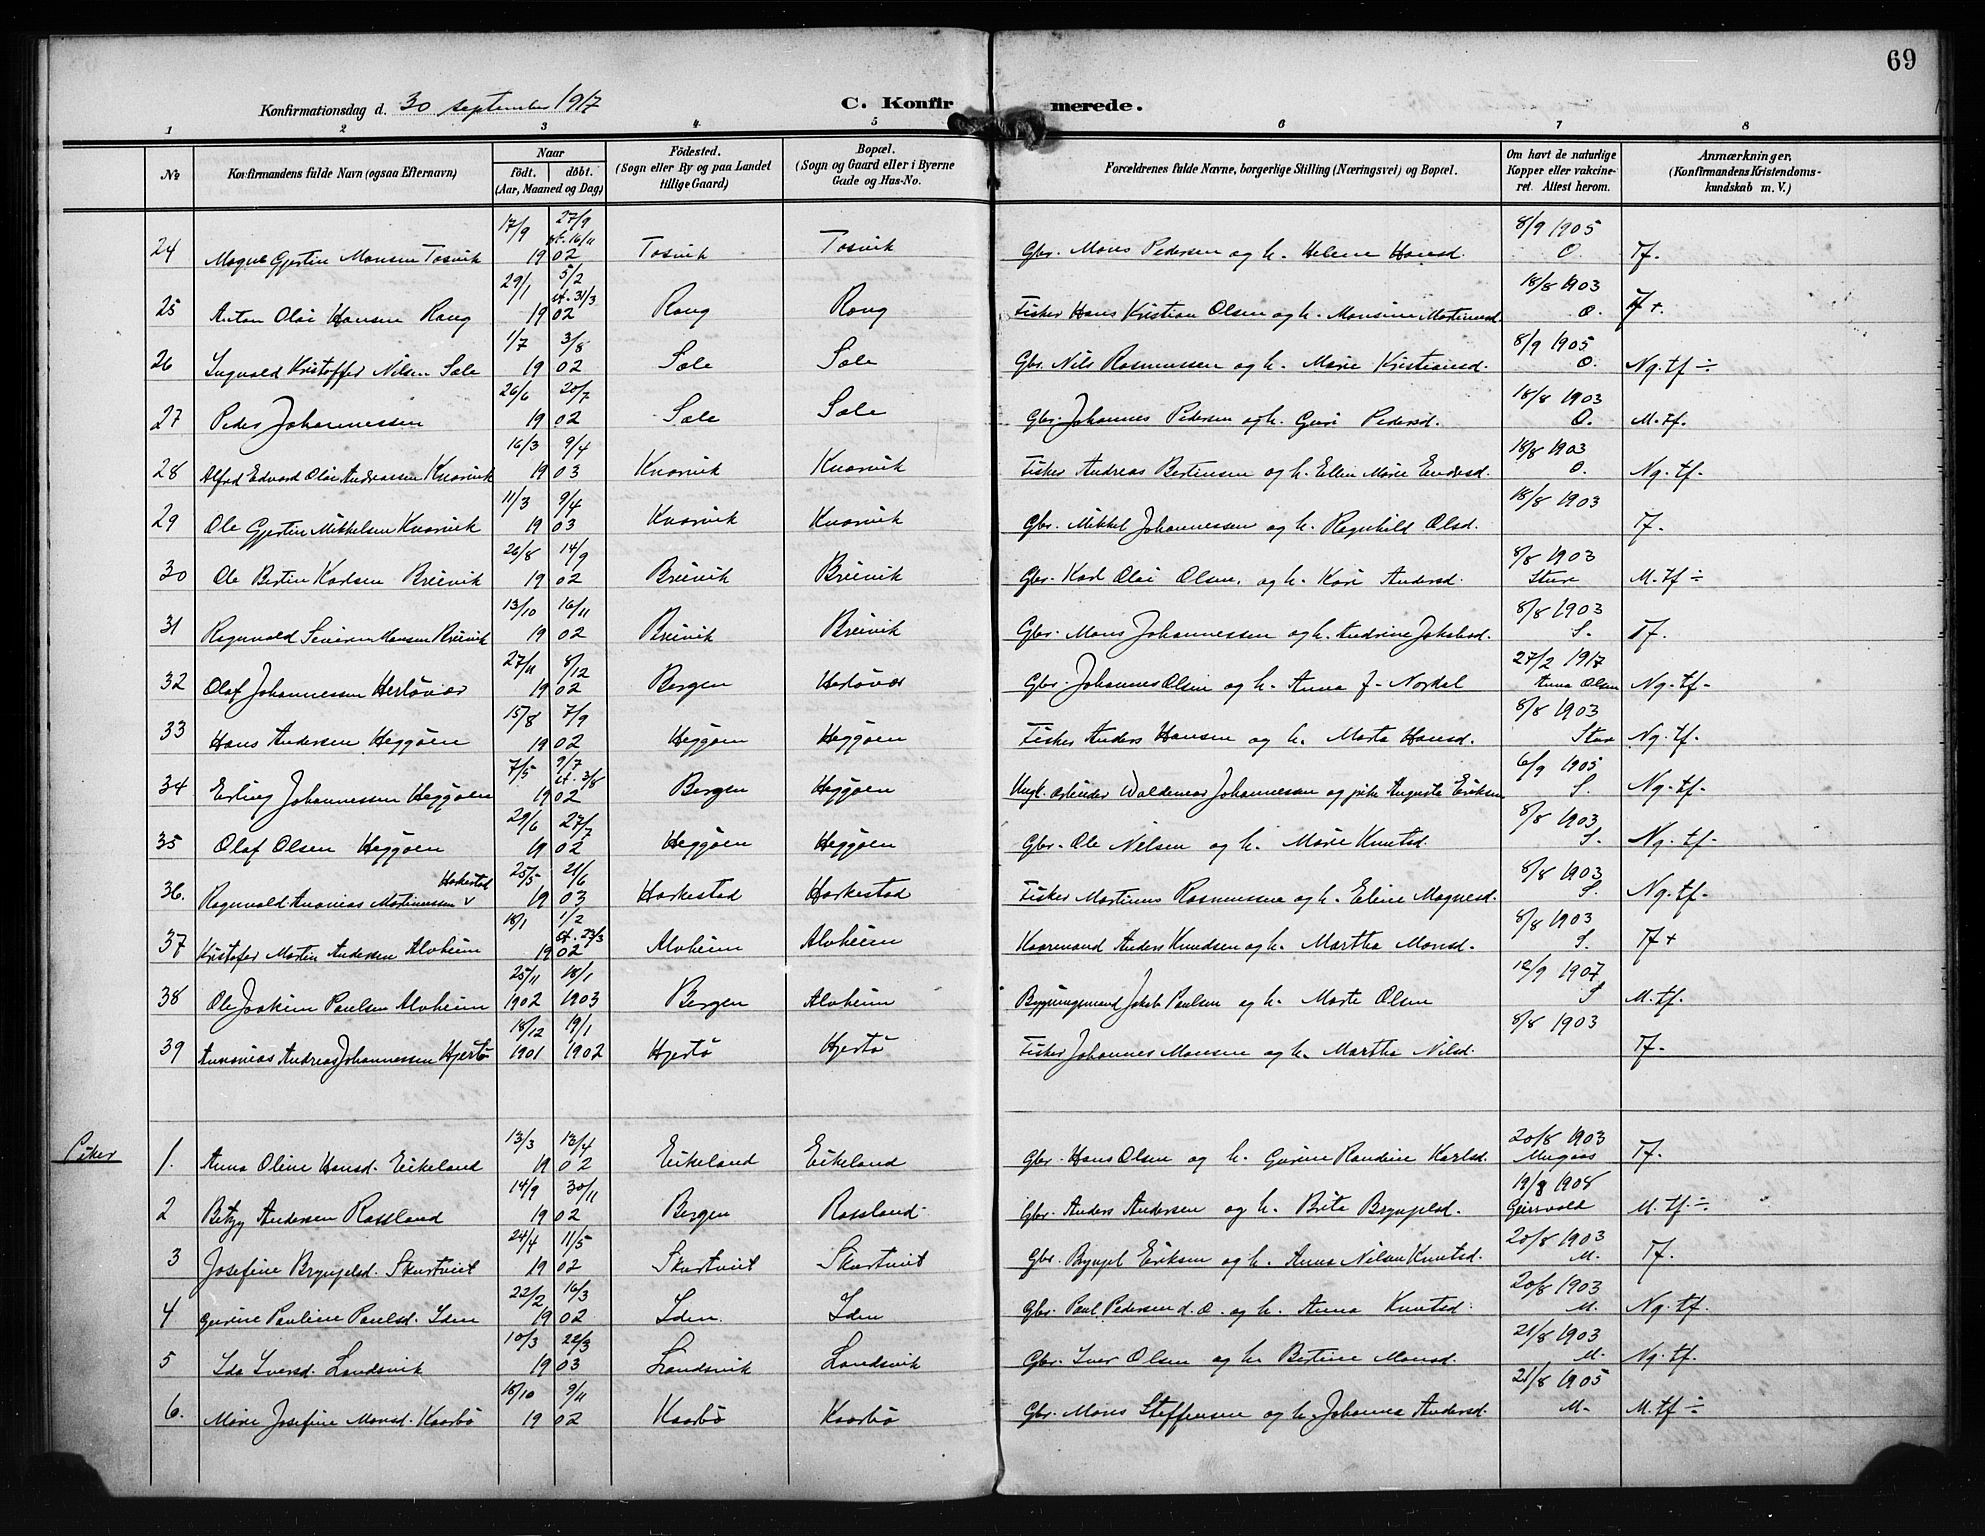 69
Konfirmationsdag d. 30 september 1917 C. Konfirmerede.
1 2 3 4 5 6 7 8
No Konfirmandens fulde Navn (ogsaa Efternavn) Naar født. døbt. (Aar, Maaned og Dag) Fødested. (Sogn eller By og paa Landet tillige Gaard) Bopæl. (Sogn og Gaard eller i Byerne Gade og Hus-No. Forældrenes fulde Navne, borgerlige Stilling (Næringsvei) og Bopæl. Om havt de naturlige Kopper eller vakcineret. Attest herom. Anmærkninger, (Konfirmandens Kristendomskundskab m. V.)
24 Magnus Gjertin Monsen Tosvik 17/9 1902 27/9 st. 16/11 Tosvik Tosvik Gbr. Mons Pedersen og h. Helene Hansd. 8/9 1905 O. Tf.
25 Anton Olai Hansen Rong 29/1 1902 5/2 st. 31/3 Rong Rong Fisker Hans Kristian Olsen og h. Monsine Martinusd. 18/8 1903 O. Tf +.
26 Ingvald Kristoffer Nilsen Sæle 1/7 1902 3/8 Sæle Sæle Gbr. Nils Rasmussen og h. Marie Kristiansd. 8/9 1905 O. Ng. tf ÷
27 Peder Johannessen 26/6 1902 20/7 Sæle Sæle Gbr. Johannes Pedersen og h. Guri Pedersd. 18/8 1903 O. M. tf.
28 Alfred Edvard Olai Andreassen Knarvik 16/3 1903 9/4 Knarvik Knarvik Fisker Andreas Bertinsen og h. Ellen Marie Endresd. 18/8 1903 O. Ng. tf.
29 Ole Gjertin Mikkelsen Knarvik 11/3 1903 9/4 Knarvik Knarvik Gbr. Mikkel Johannessen og h. Ragnhild Olsd. 18/8 1903 Tf.
30 Ole Bertin Karlsen Breivik 26/8 1902 14/9 Breivik Breivik Gbr. Karl Olai Olsen og h. Kari Andersd. 8/8 1903 Sture M. tf ÷
31 Ragnvald Severin Monsen Breivik 13/10 1902 16/11 Breivik Breivik Gbr. Mons Johannessen og h. Andrine Jakobsd. 8/8 1903 S. Tf.
32 Olaf Johannessen Herløvær 27/11 1902 8/12 Bergen Herløvær Gbr. Johannes Olsen og h. Anna f. Nordal 27/2 1917 Anna Olsen Ng. tf.
33 Hans Andersen Heggøen 15/8 1902 7/9 Heggøen Heggøen Fisker Anders Hansen og h. Marta Hansd. 8/8 1903 Stur Ng. tf.
34 Erling Johannessen Heggøen 7/5 1902 9/7 st. 3/8 Bergen Heggøen Ungk. arbeider Waldemar Johannessen og pike Augusta Eriksen 6/9 1905 S. Ng. tf.
35 Olaf Olsen Heggøen 29/6 1902 27/7 Heggøen Heggøen Gbr. Ole Nilsen og h. Marie Knutsd. 8/8 1903 S. Ng. tf.
36. Ragnvald Ananias Martinussen Harkestad 25/5 1903 21/6 Harkestad Harkestad Fisker Martinus Rasmussen og h. Eline Magnesd. 8/8 1903 S. Ng. tf.
37 Kristofer Martin Andersen Alvheim 18/1 1902 1/2 st. 23/3 Alvheim Alvheim Kaarmand Anders Knudsen og h. Martha Monsd. 8/8 1903 S. Tf +
38 Ole Joakim Paulsen Alvheim 25/11 1902 18/1 1903 Bergen Alvheim Bygningsmand Jakob Paulsen og h. Marte Olsen 12/9 1907 S M. tf.
39 Annanias Andreas Johannessen Hjertø 18/12 1901 19/1 1902 Hjertø Hjertø Fisker Johannes Monsen og h. Martha Nilsd. 8/8 1903 Tf.
Piker
1. Anna Oline Hansd. Eikeland 13/3 1902 13/4 Eikeland Eikeland Gbr. Hans Olsen og h. Gurine Randine Karlsd. 20/8 1903 Mugaas Tf.
2 Betzy Andersen Rossland 14/9 1902 30/11 Bergen Rossland Gbr. Anders Andersen og h. Brita Brynjelsd. 19/8 1908 Geirvold M. tf. ÷
3 Josefine Brynjelsd. Skurtveit 24/4 1902 11/5 Skurtveit Skurtveit Gbr. Brynjel Eriksen og h. Anna Nilsen Knutsd. 20/8 1903 M. Tf.
4 Gurine Pauline Paulsd. Iden 22/2 1902 16/3 Iden. Iden Gbr. Paul Pedersen d. O. og h. Anna Knutsd. 20/8 1903 M. Ng. tf.
5 Ida Iversd. Landsvik 10/3 1903 22/3 Landsvik Landsvik Gbr. Iver Olsen og h. Bertine Monsd. 21/8 1903 M. Ng. tf.
6. Marie Josefine Monsd. Kaarbø 18/10 1902 9/11 Kaarbø Kaarbø Gbr. Mons Steffensen og h. Johanna Andersd. 21/8 1905 M. M. tf ÷